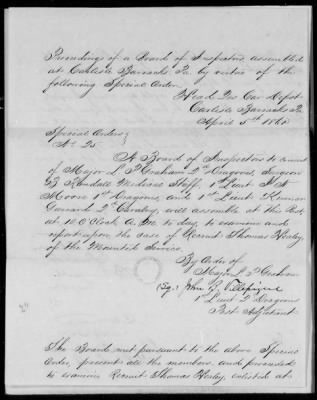 Proceedings of a Board of Inspectors, assembled
at Carlisle Barracks, Pa by virtue of the
following Special Order
Head Qrs Cav Depot
Carlisle Barracks Pa
April 5th 1860
Special Orders
No 25
A Board of Inspectors to consist
of Major L P Graham 2nd Dragoons, Surgeon
Medical Staff, 1 Lieut
Moore 1st Dragoons, and 1st Lieut Kenner
Garrard 2nd Cavalry, will assemble at the Post
at 10 O'Clock A. M. to day, to examine and
report upon the case of Recruit Thomas
of the Mounted Service.
By Order of
Major L P Graham
Sg: John B. Villepigue
1 Lieut 2 Dragoons
Post Adjutant
The Board met pursuant to the above Special
Order, present all the members, and proceeded
to examine Recruit Thomas enlisted at